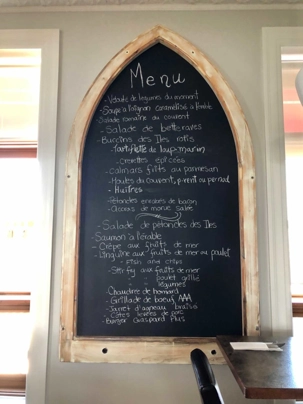 Menu
- Velouté de légumes du moment
- Soupe à l'oignon caramélisé à l'érable
Salade romaine au couvent
- Salade de betteraves
- Buccins des Iles rotis
- Tartiflette de loup-marin
- Crevettes épicées
- Calmars frits au parmesan
- Moules du couvent, p-verni ou pernod
- Huîtres
- Pétoncles enrobés de bacon
- Accras de morue salée
- Salade de pétoncles des Iles
Saumon à l'érable
- Crêpe aux fruits de mer
- Linguine aux fruits de mer ou poulet
- Fish and chips
- Stir fry aux fruits de mer
poulet grillé
légumes
- Chaudrée de homard
- Grillade de boeuf AAA
- Jarret d'agneau braisé
- Côtes levées de porc
- Burger Gaspard Plus